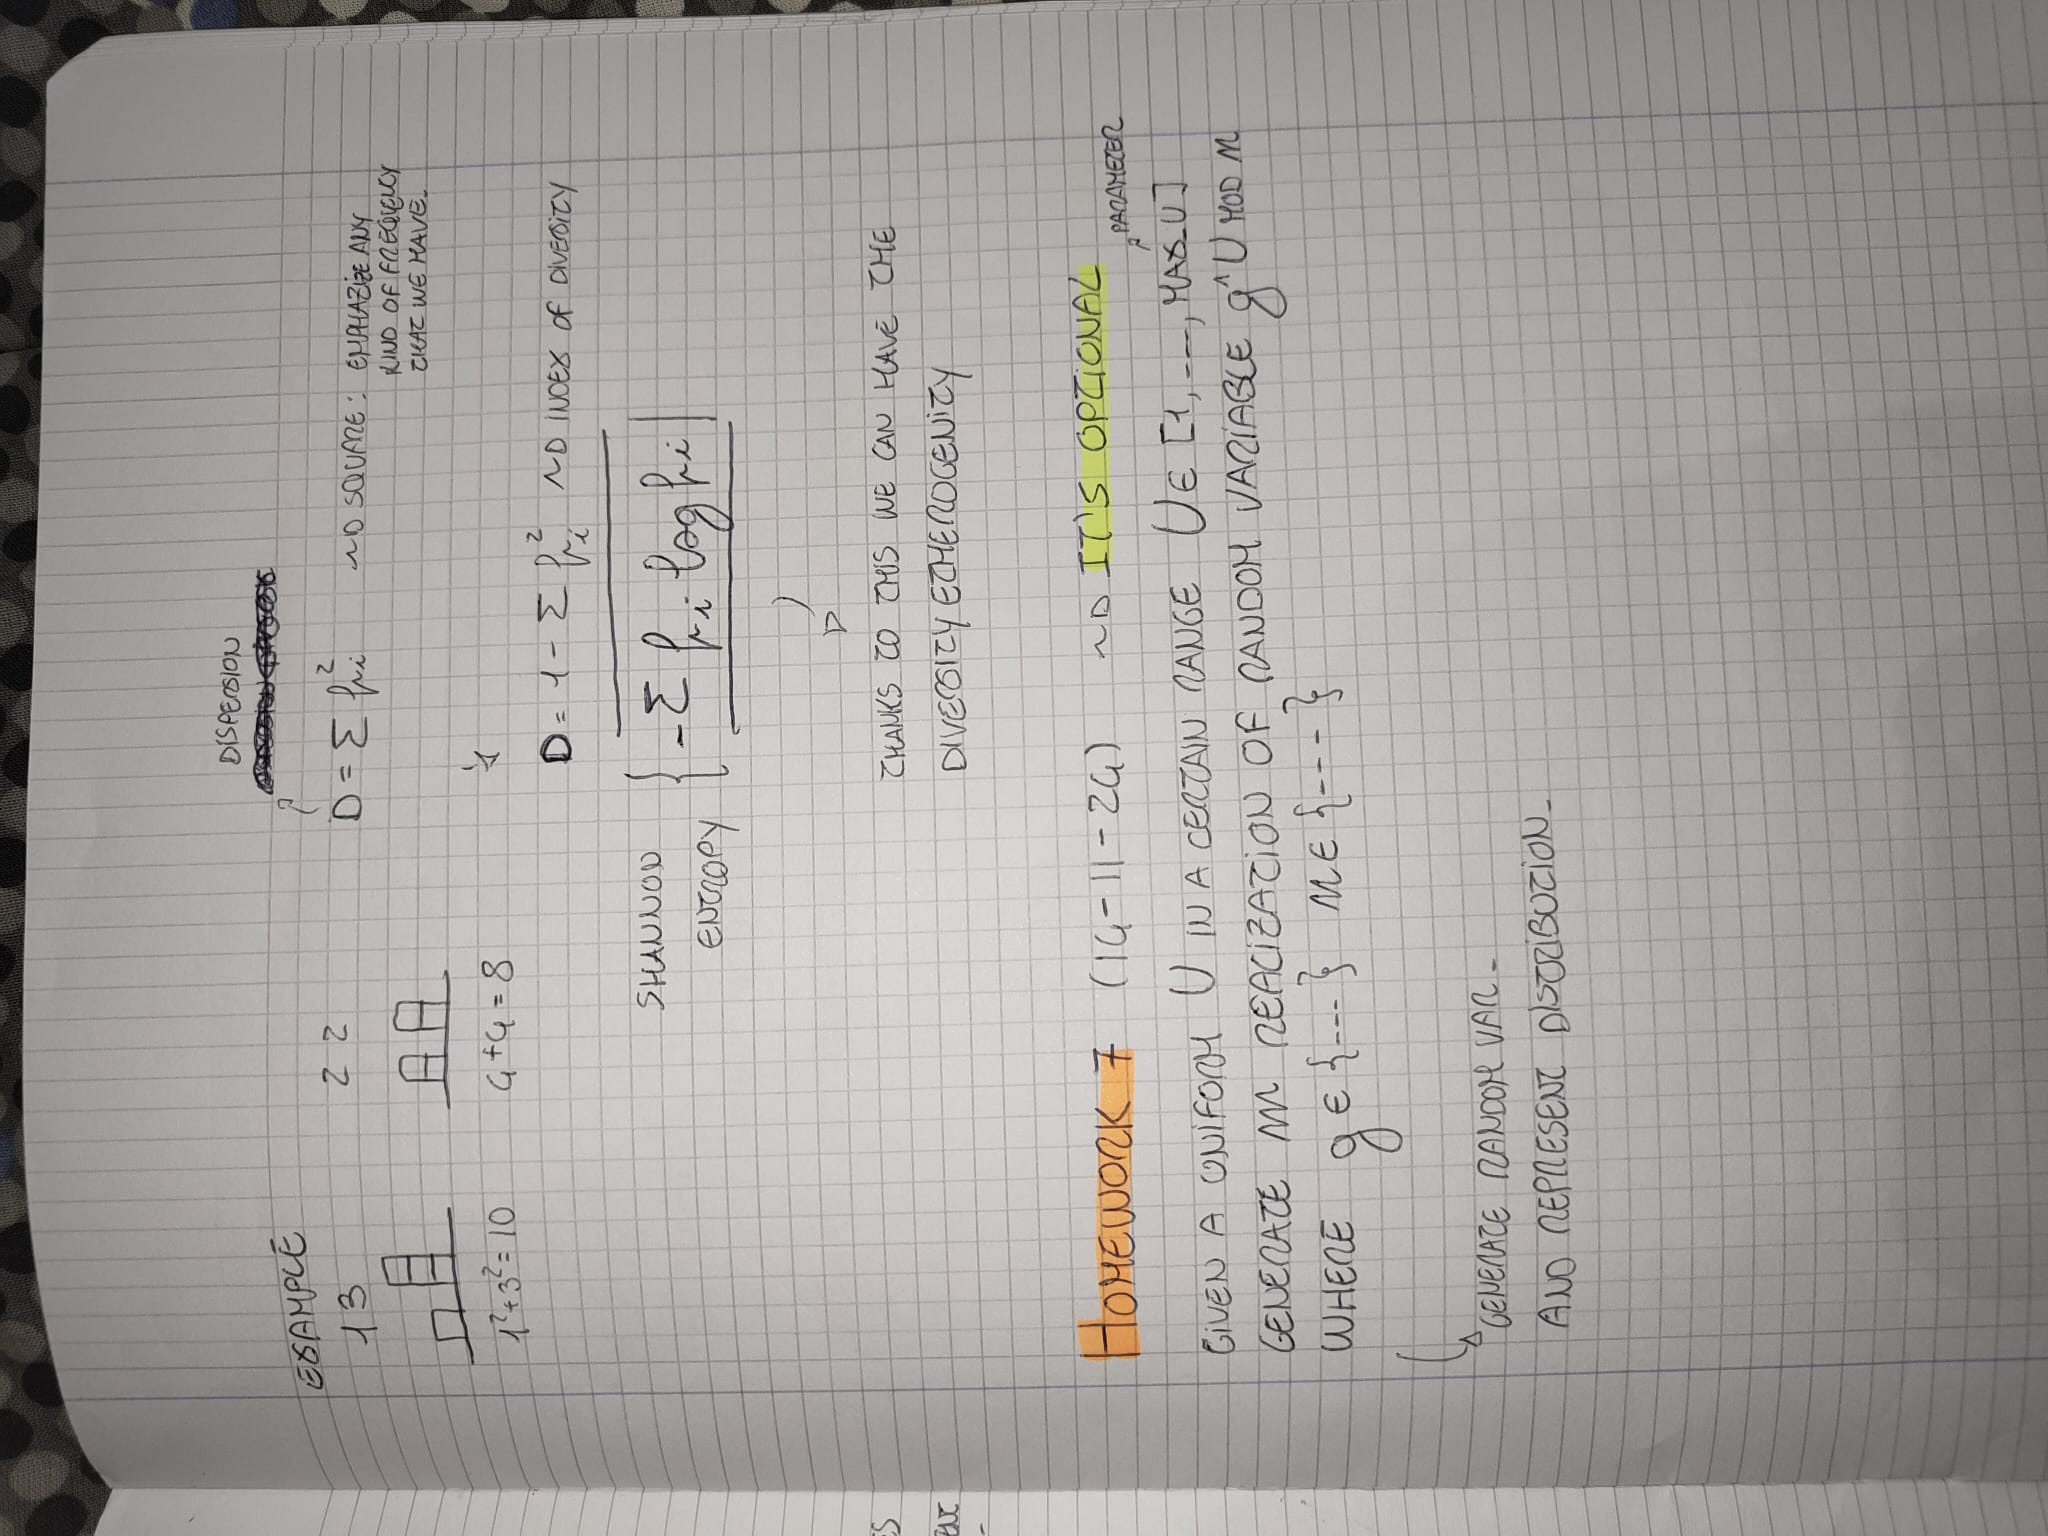 DISPERSION
EXAMPLE
1 3
2 2
D = Σ pi²
~D SQUARE: EMPHAZIZE ANY
KIND OF FREQUENCY
THAT WE HAVE.
1²+3²=10
4+4=8
D = 1 - Σ pi² ~D INDEX OF DIVERSITY
SHANNON
ENTROPY
{ -Σ pi log pi |
THANKS TO THIS WE CAN HAVE THE
DIVERSITY ETHEROGENITY
HOMEWORK 7 (14-11-24) ~D IT'S OPTIONAL
PARAMETER
GIVEN A UNIFORM U IN A CERTAIN RANGE U ∈ [1, ---, MAX_U]
GENERATE m REALIZATION OF RANDOM VARIABLE g^U MOD n
WHERE g ∈ {---} n ∈ {----}
GENERATE RANDOM VAR.
AND REPRESENT DISTRIBUTION.